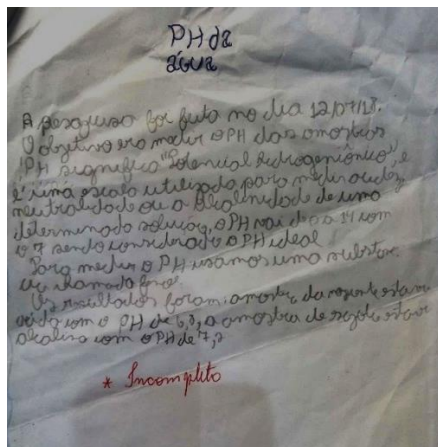 PH da
água
A pesquisa foi feita no dia 12/07/18.
O objetivo era medir o PH das amostras
"PH significa "Potencial hidrogeniônico", e
é uma escala utilizada para medir acidez
neutralidade ou a alcalinidade de uma
determinada solução, o PH vai de 0 a 14 com
o 7 sendo considerado o PH ideal
Para medir o PH usamos uma substân-
cia chamada
Os resultados foram: amostra da nascente estava
ácida com o PH de 6,8, a amostra de estava
alcalina com o PH de 7,2
* Incompleto